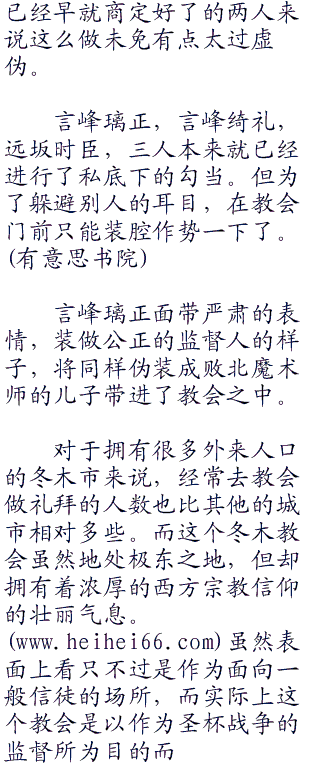 已经早就商定好了的两人来
说这么做未免有点太过虚
伪。
言峰璃正，言峰绮礼，
远坂时臣，三人本来就已经
进行了私底下的勾当。但为
了躲避别人的耳目，在教会
门前只能装腔作势一下了。
(有意思书院)
言峰璃正面带严肃的表
情，装做公正的监督人的样
子，将同样伪装成败北魔术
师的儿子带进了教会之中。
对于拥有很多外来人口
的冬木市来说，经常去教会
做礼拜的人数也比其他的城
市相对多些。而这个冬木教
会虽然地处极东之地，但却
拥有着浓厚的西方宗教信仰
的壮丽气息。
(www.heihei66.com)虽然表
面上看只不过是作为面向一
般信徒的场所，而实际上这
个教会是以作为圣杯战争的
监督所为目的而